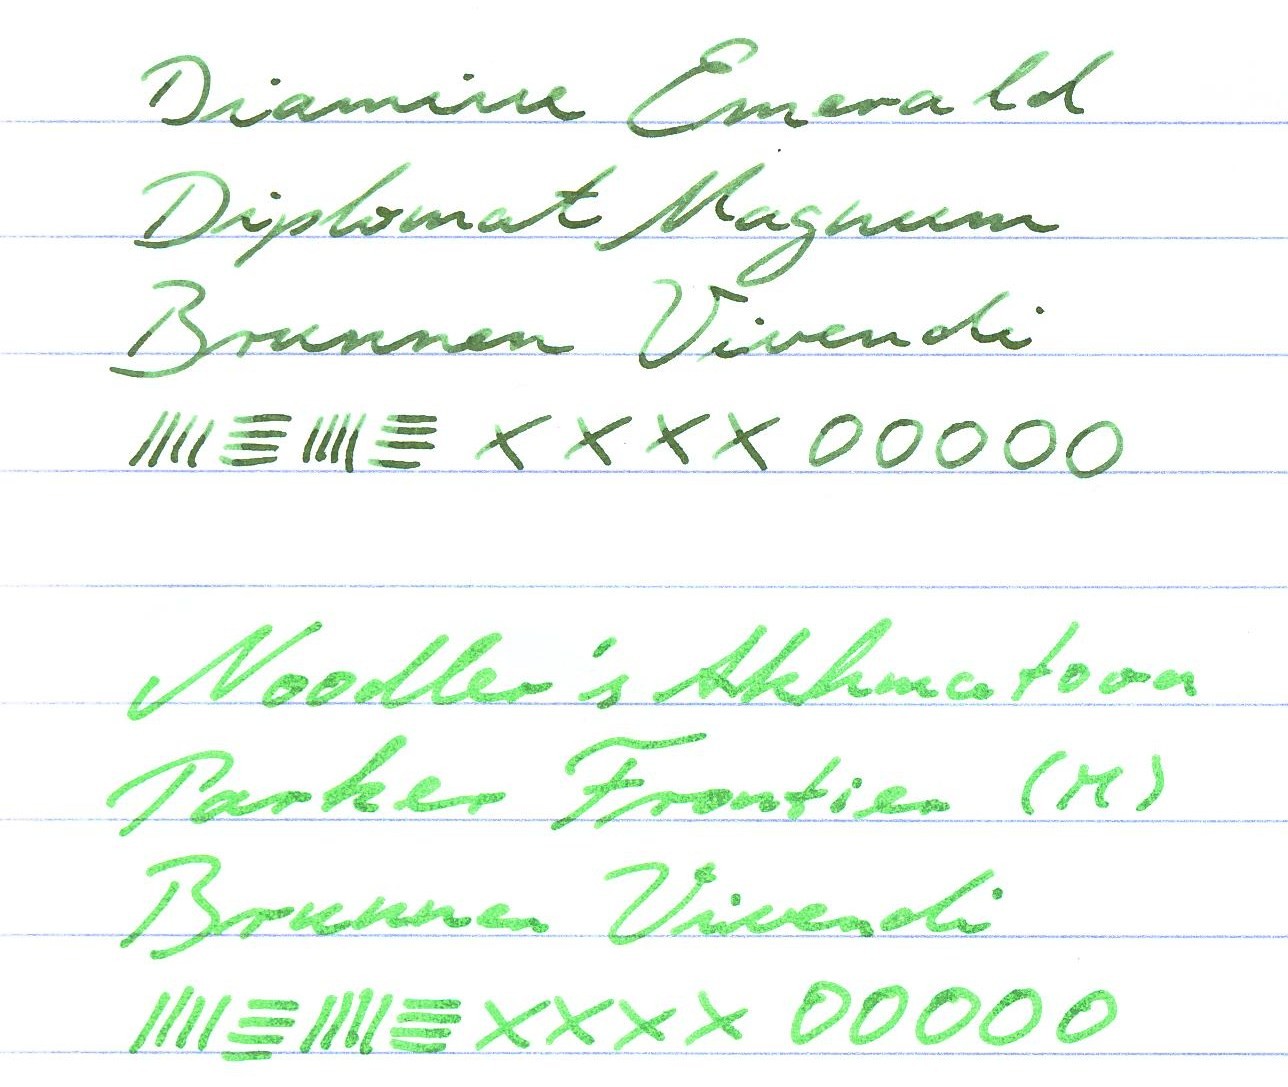 Diamine Emerald
Diplomat Magnum
Brunnen Vivendi
XXXX OOOOO
Noodler's Akhmatova
Parker Frontier (M)
Brunnen Vivendi
XXXX OOOOO